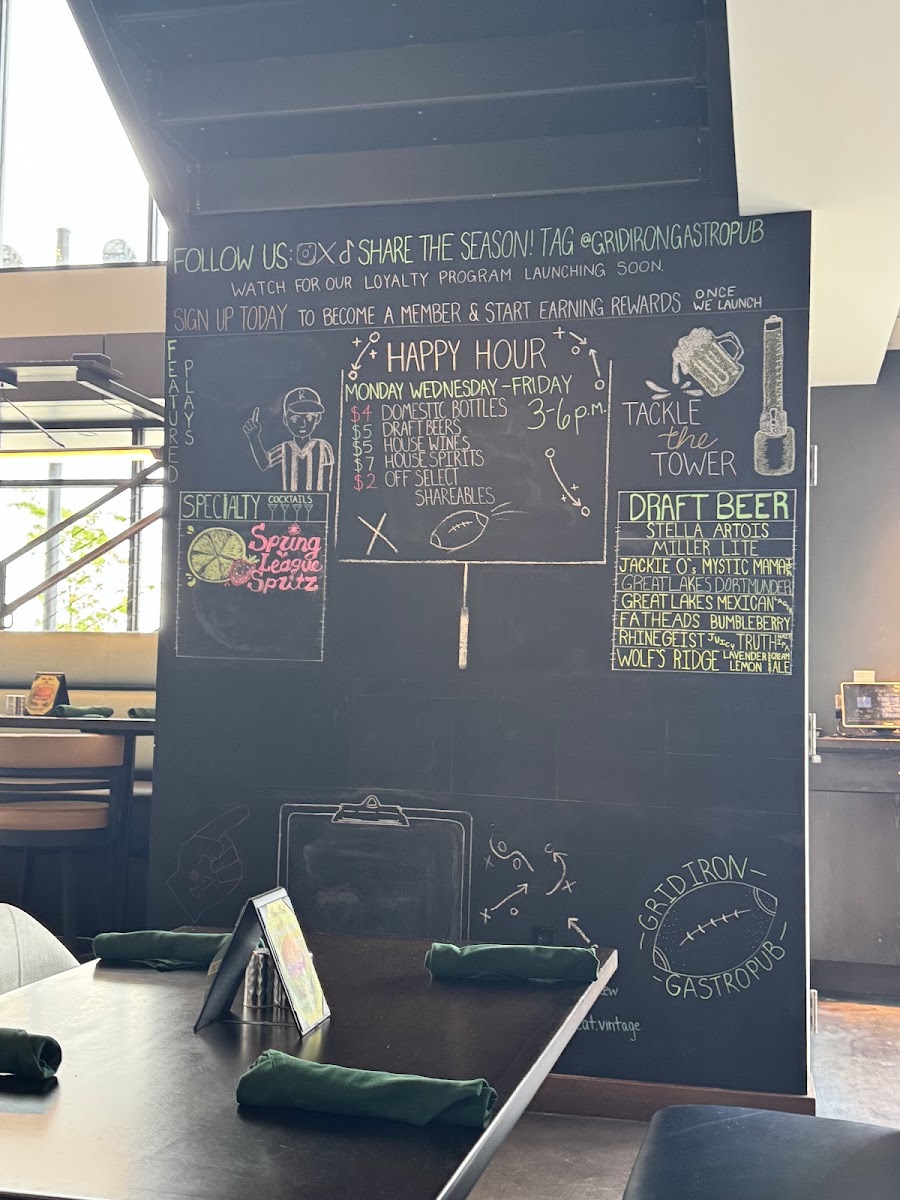 FOLLOW US: X SHARE THE SEASON! TAG @GRIDIRONGASTROPUB
WATCH FOR OUR LOYALTY PROGRAM LAUNCHING SOON.
SIGN UP TODAY TO BECOME A MEMBER & START EARNING REWARDS ONCE WE LAUNCH
FEATURED
PLAYS
SPECIALTY COCKTAILS
Spring
League
Spritz
HAPPY HOUR
MONDAY WEDNESDAY - FRIDAY
3-6 p.m.
$4 DOMESTIC BOTTLES
$5 DRAFT BEERS
$5 HOUSE WINES
$7 HOUSE SPIRITS
$2 OFF SELECT
SHAREABLES
TACKLE
the
TOWER
DRAFT BEER
STELLA ARTOIS
MILLER LITE
JACKIE O's MYSTIC MAMA
GREAT LAKES DORTMUNDER
GREAT LAKES MEXICAN
FATHEADS BUMBLEBERRY
RHINEGEIST JUICY TRUTH
WOLF'S RIDGE LAVENDER LEMON CREAM ALE
GRIDIRON
GASTROPUB
eat.vintage